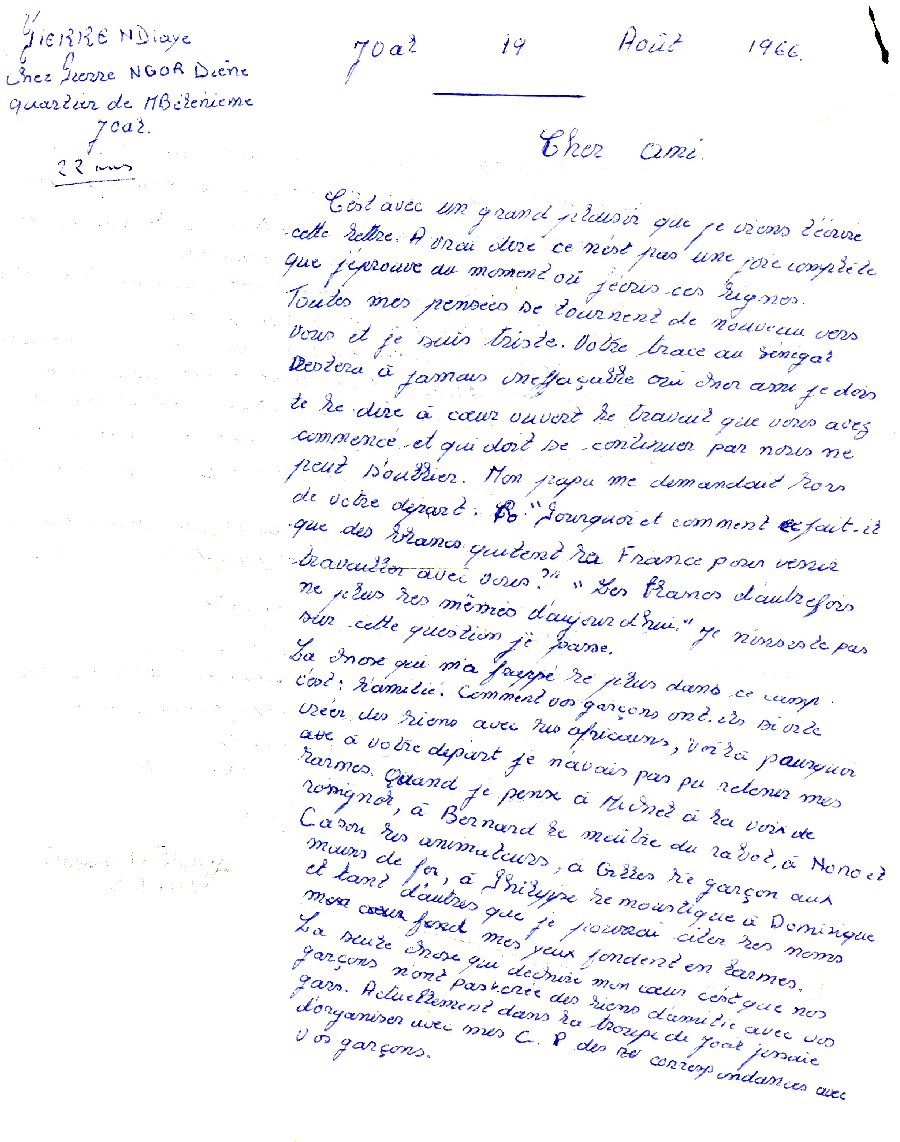 PIERRE NDiaye
chez Pierre NGOR Diène
quartier de MBélénième
Joal.
22 ans
Joal 19 Août 1966.
Cher ami.
C'est avec un grand plaisir que je viens t'écrire
cette lettre. A vrai dire ce n'est pas une joie complète
que j'éprouve au moment où j'écris ces lignes.
Toutes mes pensées se tournent de nouveau vers
vous et je suis triste. Votre trace au Sénégal
Restera à jamais ineffaçable oui cher ami je dois
te le dire à cœur ouvert le travail que vous avez
commencé et qui doit se continuer par nous ne
peut s'oublier. Mon papa me demandait lors
de votre départ. "Pourquoi et comment se fait-il
que des blancs quitent la France pour venir
travailler avec vous?" "Les blancs d'autrefois
ne plus les mêmes d'aujourd'hui." Je n'insiste pas
sur cette question je passe.
La chose qui m'a frappé le plus dans ce camp
c'est: l'amitié. Comment vos garçons ont-ils si vite
créer des liens avec les africains, voilà pourquoi
à votre départ je n'avais pas pu retenir mes
larmes. Quand je pense à Michel à la voix de
rossignol, à Bernard le maître du rabot, à Nono et
Casou les animateurs, à Gilles le garçon aux
mains de fer, à Philippe le moustique à Dominique
et tant d'autres que je pourrai citer les noms
mon cœur fend mes yeux fondent en larmes.
La seule chose qui déchire mon cœur c'est que nos
garçons n'ont pas crée des liens d'amitié avec vos
gars. Actuellement dans la troupe de Joal j'essaie
d'organiser avec mes C.P des correspondances avec
vos garçons.